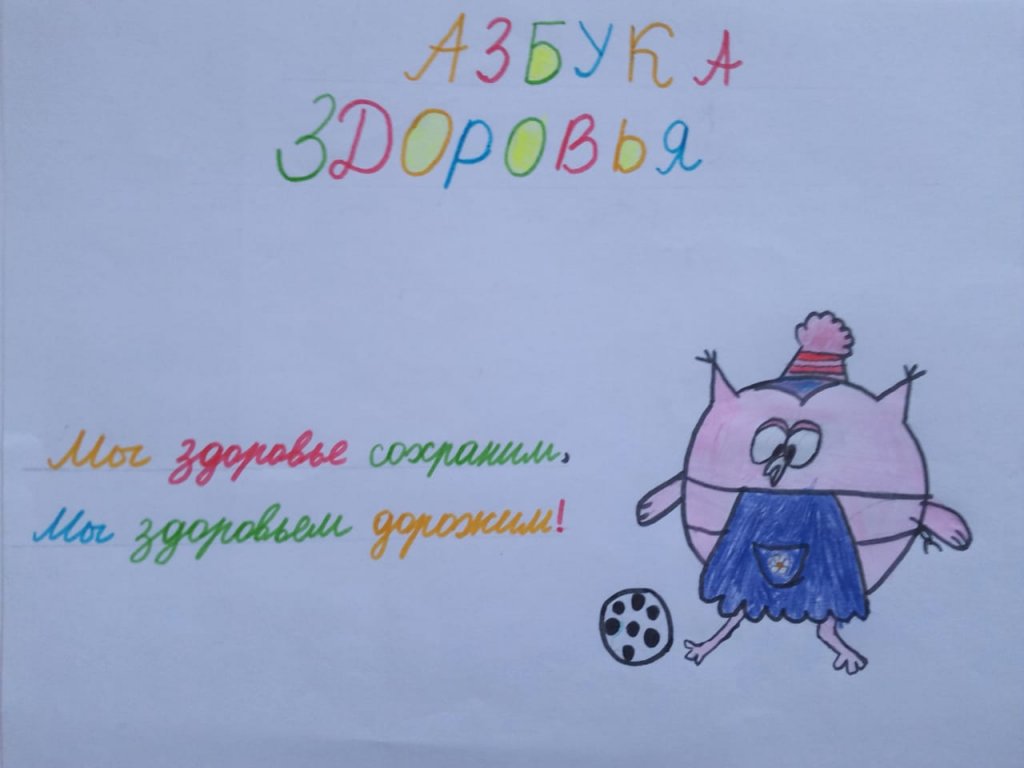 АЗБУКА
ЗДОРОВЬЯ
Мы здоровье сохраним,
Мы здоровьем дорожим!